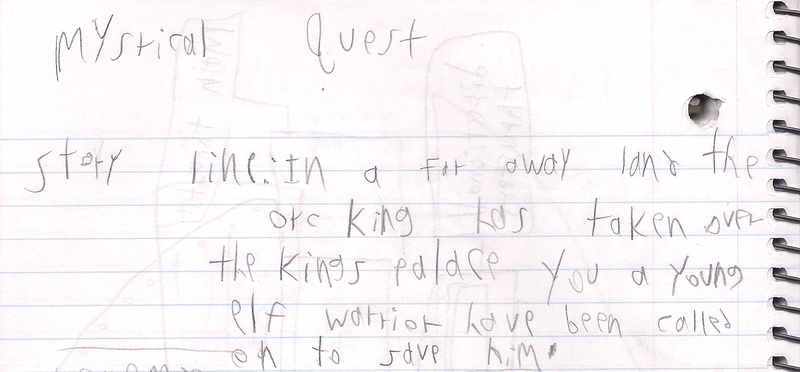 Mystical Quest
Story line: In a far away land the
orc king has taken over
the kings palace you a young
elf warrior have been called
on to save him.